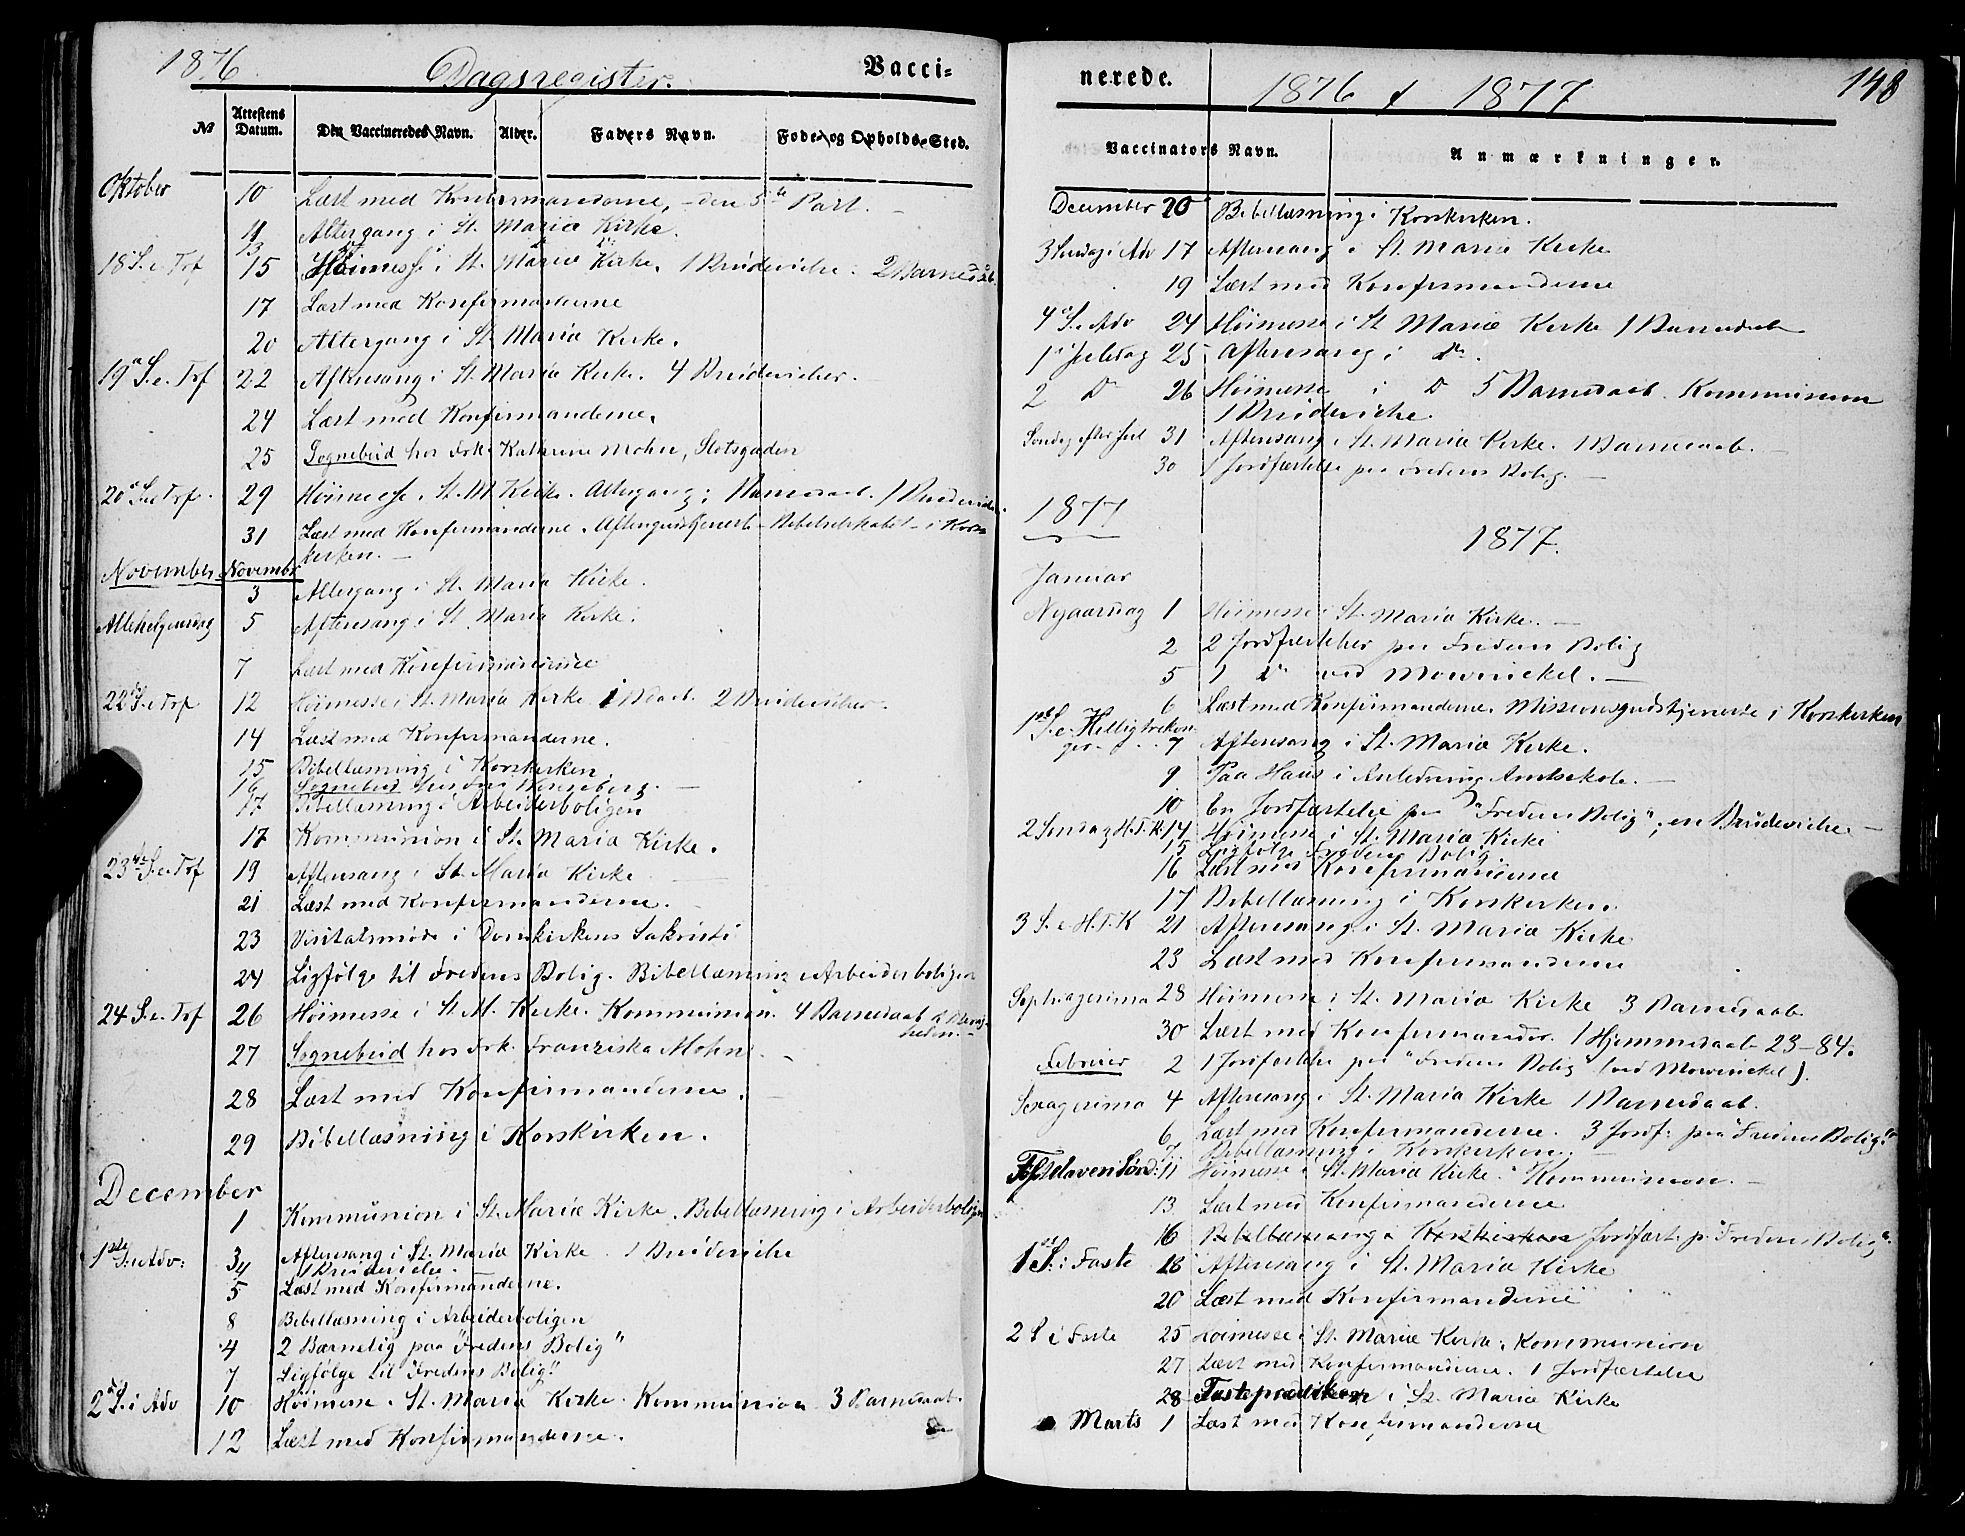 1876.
Dagsregister.
Vacci-
№ Attestens Datum. Den Vaccineredes Navn. Alder. Faders Navn. Føde- og Opholds-Sted.
Oktober 10 Læst med Konfirmanderne, - den 5te Part. -
11 Altergang i St. Maria Kirke.
13
18 S. e. Trf 15 Høimesse i St. Maria Kirke. 1 Brudevielse. 2 Barnedåb.
17 Læst med Konfirmanderne
20 Altergang i St. Maria Kirke.
19 S. e. Trf 22 Aftensang i St. Maria Kirke. 4 Brudevielser.
24 Læst med Konfirmanderne.
25 Sognebud hos Frk. Kathrine Mohn, Slotsgaden
20 S. e. Trf. 29 Høimesse i St. M. Kirke. Altergang; Barnedaab. 1 Brudevielse
31 Læst med Konfirmanderne. Aftengudstjeneste - Bibelselskabet - i Kors-
kirken. -
November November
3 Altergang i St. Maria Kirke.
Allehelgensdag 5 Aftensang i St. Maria Kirke.
7 Læst med Konfirmanderne
22 S. e. Trf 12 Høimesse i St. Maria Kirke 1 Bdaab 2 Brudevielser.
14 Læst med Konfirmanderne.
15 Bibellæsning i Korskirken
16 Sognebud hos
17 Bibellæsning i Arbeiderboligen
17 Kommunion i St. Maria Kirke.
23de S. e. Trf 19 Aftensang i St. Maria Kirke
21 Læst med Konfirmanderne.
23 Visitatsmøde i Domkirkens Sakristi
24 Ligfølge til Fredens Bolig. Bibellæsning i Arbeiderboligen
24 S. e. Trf 26 Høimesse i St. M. Kirke. Kommunion. 4 Barnedaab
27 Sognebud hos Frk. Franziska Mohn. -
28 Læst med Konfirmanderne. -
29 Bibellæsning i Korskirken.
December
1 Kommunion i St. Maria Kirke. Bibellæsning i Arbeiderboligen
1ste S. i Adv: 3 Aftensang i St. Maria Kirke. 1 Brudevielse
4 1 Brudevielse.
5 Læst med Konfirmanderne.
8 Bibellæsning i Arbeiderboligen
4 2 Barnelig paa "Fredens Bolig"
7 Ligfølge til "Fredens Bolig"
2 S. i Adv 10 Høimesse i St. Maria Kirke. Kommunion 3 Barnedaab.
12 Læst med Konfirmanderne.
nerede.
1876 & 1877
148
Vaccinators Navn. Anmærkninger.
December 20 Bibellæsning i Korskirken.
3 Søndag i Adv 17 Aftensang i St. Maria Kirke
19 Læst med Konfirmanderne
4 S. i Adv 24 Høimesse i St Maria Kirke 1 Barnedaab
1 Juledag 25 Aftensang i Do.
2 Do 26 Høimesse i Do 5 Barnedaab. Kommunion
1 Brudevielse.
Søndag efter Jul 31 Aftensang i St. Maria Kirke. 1 Barnedaab. -
30 1 Jordfæstelse paa Fredens Bolig. -
1877
1877.
Januar
Nyaarsdag 1 Høimesse i St. Maria Kirke. -
2 2 Jordfæstelser paa Fredens Bolig
5 1 Do ved Mowinckel. -
6 Læst med Konfirmanderne. Missionsgudstjeneste i Korskirken
1ste S. e. Hellig trekon-
ger - - - 7 Aftensang i St. Maria Kirke.
9 Paa Haus i Anledning Amtsskole. -
10 En Jordfæstelse paa "Fredens Bolig"; en Brudevielse -
2 Søndag H.T.K. 14 Høimesse i St. Maria Kirke
15 Ligfølge Fredens Bolig.
16 Læst med Konfirmanderne
17 Bibellæsning i Korskirken.
3 S. e. H.T.K 21 Aftensang i St. Maria Kirke
23 Læst med Konfirmanderne
Septuagesima 28 Høimesse i St. Maria Kirke 3 Barnedaab
30 Læst med Konfirmander. 1 Hjemmedaab 23-84.
Februar 2 1 Jordfæstelse paa "Fredens Bolig" (ved Mowinckel).
Sexagesima 4 Aftensang i St. Maria Kirke 1 Barnedaab.
6 Læst med Konfirmanderne. 3 Jordf: paa "Fredens Bolig"
7 Bibellæsning i Korskirken.
Fastelavens Sønd: 11 Høimesse i St. Maria Kirke. Kommunion. -
13 Læst med Konfirmanderne
16 Bibellæsning i Korskirken Jordfæst. p. "Fredens Bolig".
1ste S. i Faste 18 Aftensang i St. Maria Kirke
20 Læst med Konfirmanderne
2 S i Faste 25 Høimesse i St. Maria Kirke. Kommunion
27 Læst med Konfirmanderne. 1 Jordfæstelse
28 Fasteprædiken i St. Maria Kirke
Marts 1 Læst med Konfirmanderne